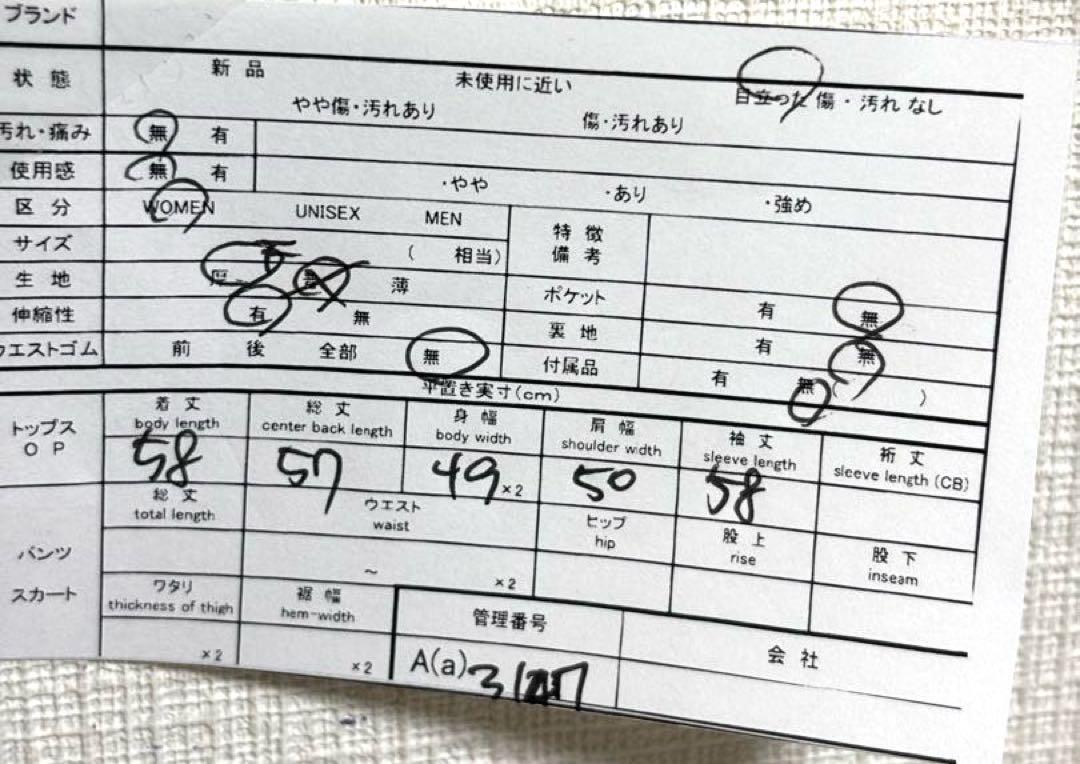 ブランド
状態 新品 未使用に近い 目立った傷・汚れなし
やや傷・汚れあり 傷・汚れあり
汚れ・痛み 無 有
使用感 無 有 ・やや ・あり ・強め
区分 WOMEN UNISEX MEN 特徴
備考
サイズ ( 相当)
生地 厚 薄 ポケット 有 無
伸縮性 有 無 裏地 有 無
ウエストゴム 前 後 全部 無 付属品 有 無 ( )
平置き実寸(cm)
トップス 着丈 総丈 身幅 肩幅 袖丈 裄丈
OP body length center back length body width shoulder width sleeve length sleeve length (CB)
58 57 49 ×2 50 58
総丈 ウエスト ヒップ 股上 股下
total length waist hip rise inseam
パンツ
～ ×2
スカート ワタリ 裾幅 管理番号 会社
thickness of thigh hem-width
×2 ×2 A(a)